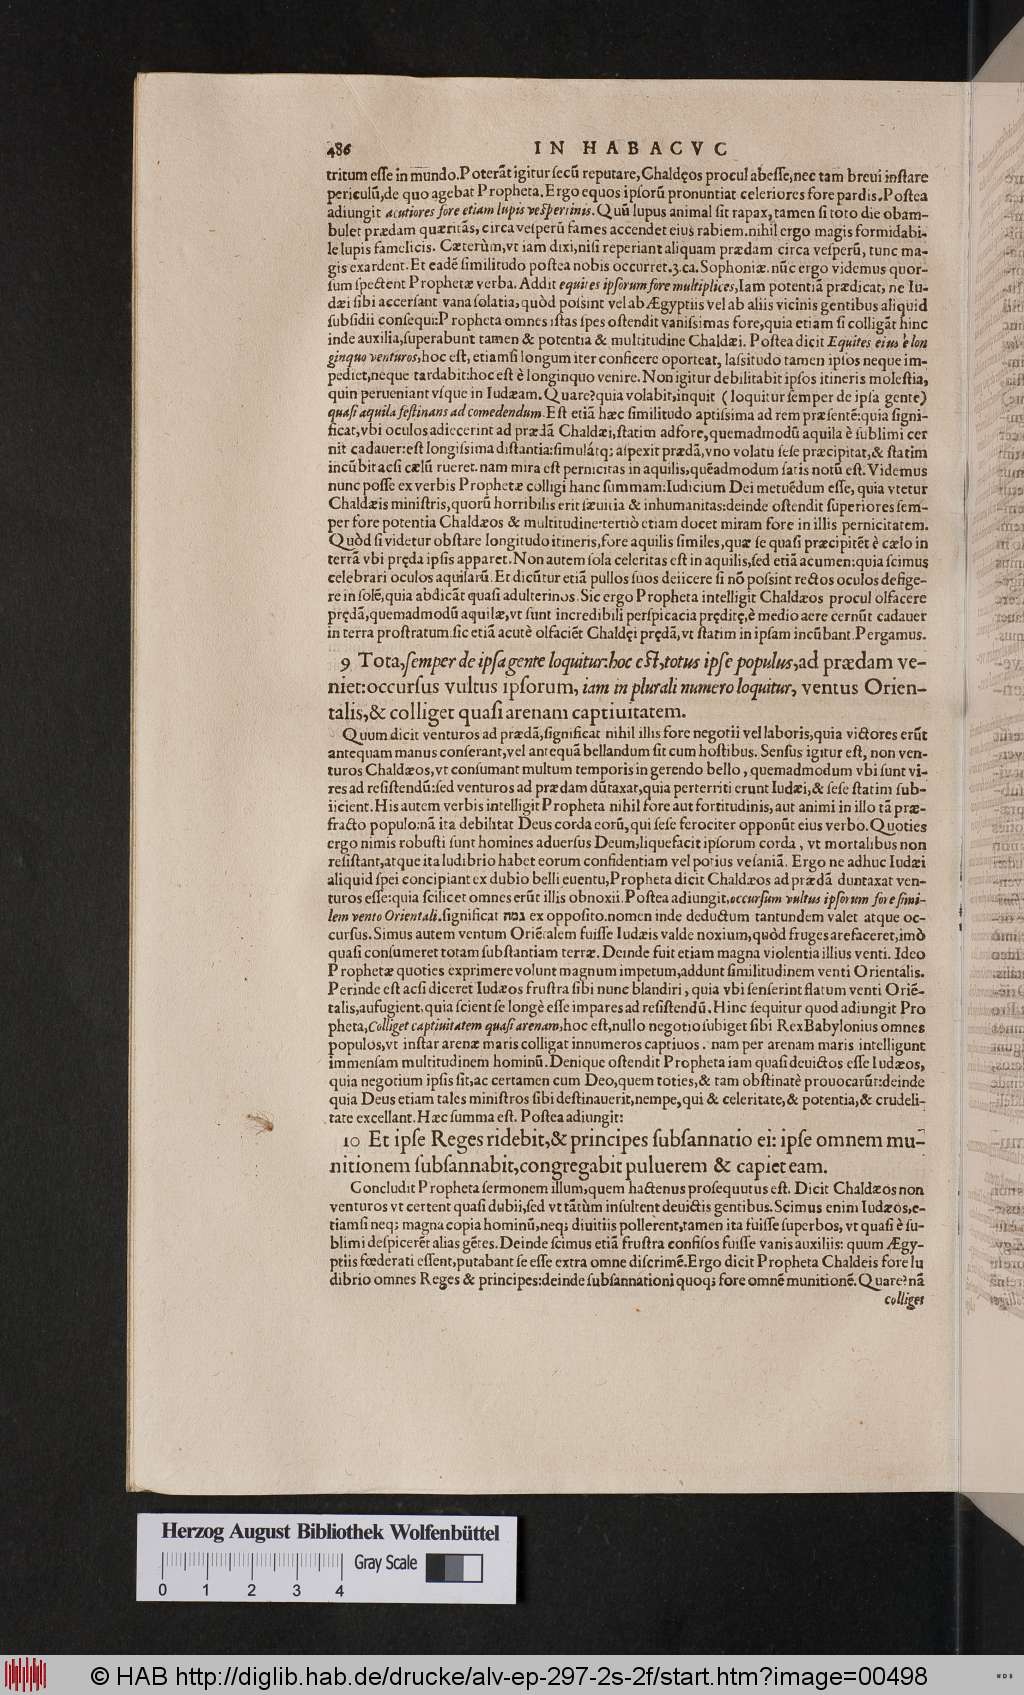 486 IN HABACVC
tritum eſſe in mundo. Poterãt igitur ſecũ reputare, Chaldęos procul abeſſe, nec tam breui inſtare
periculũ, de quo agebat Propheta. Ergo equos ipſorũ pronuntiat celeriores fore pardis. Poſtea
adiungit acutiores fore etiam lupis veſpertinis. Quũ lupus animal ſit rapax, tamen ſi toto die obam-
bulet prædam quæritãs, circa veſperũ fames accendet eius rabiem. nihil ergo magis formidabi-
le lupis famelicis. Cæterùm, vt iam dixi, niſi reperiant aliquam prædam circa veſperũ, tunc ma-
gis exardent. Et eadẽ ſimilitudo poſtea nobis occurret. 3. ca. Sophoniæ. nũc ergo videmus quor-
ſum ſpectent Prophetæ verba. Addit equites ipſorum fore multiplices, Iam potentiã prædicat, ne Iu-
dæi ſibi accerſant vana ſolatia, quòd poſsint vel ab Ægyptiis vel ab aliis vicinis gentibus aliquid
ſubſidii conſequi: Propheta omnes iſtas ſpes oſtendit vaniſsimas fore, quia etiam ſi colligãt hinc
inde auxilia, ſuperabunt tamen & potentia & multitudine Chaldæi. Poſtea dicit Equites eius è lon
ginquo venturos, hoc eſt, etiamſi longum iter conficere oporteat, laſsitudo tamen ipſos neque im-
pediet, neque tardabit: hoc eſt è longinquo venire. Non igitur debilitabit ipſos itineris moleſtia,
quin perueniant vſque in Iudæam. Quare? quia volabit, inquit (loquitur ſemper de ipſa gente)
quaſi aquila feſtinans ad comedendum. Eſt etiã hæc ſimilitudo aptiſsima ad rem præſentẽ: quia ſigni-
ficat, vbi oculos adiecerint ad prædã Chaldæi, ſtatim adfore, quemadmodũ aquila è ſublimi cer
nit cadauer: eſt longiſsima diſtantia: ſimulátq; aſpexit prædã, vno volatu ſeſe præcipitat, & ſtatim
incũbit acſi cælũ rueret. nam mira eſt pernicitas in aquilis, quẽadmodum ſatis notũ eſt. Videmus
nunc poſſe ex verbis Prophetæ colligi hanc ſummam: Iudicium Dei metuẽdum eſſe, quia vtetur
Chaldæis miniſtris, quorũ horribilis erit ſæuitia & inhumanitas: deinde oſtendit ſuperiores ſem-
per fore potentia Chaldæos & multitudine: tertiò etiam docet miram fore in illis pernicitatem.
Quòd ſi videtur obſtare longitudo itineris, fore aquilis ſimiles, quæ ſe quaſi præcipitẽt è cælo in
terrã vbi pręda ipſis apparet. Non autem ſola celeritas eſt in aquilis, ſed etiã acumen: quia ſcimus
celebrari oculos aquilarũ. Et dicũtur etiã pullos ſuos deiicere ſi nõ poſsint rectos oculos defige-
re in ſolẽ, quia abdicãt quaſi adulterinos. Sic ergo Propheta intelligit Chaldæos procul olfacere
prędã, quemadmodũ aquilæ, vt ſunt incredibili perſpicacia prędite̜, è medio aere cernũt cadauer
in terra proſtratum. ſic etiã acutè olfaciẽt Chaldęi prędã, vt ſtatim in ipſam incũbant. Pergamus.
9 Tota, ſemper de ipſa gente loquitur: hoc eſt, totus ipſe populus, ad prædam ve-
niet: occurſus vultus ipſorum, iam in plurali numero loquitur, ventus Orien-
talis, & colliget quaſi arenam captiuitatem.
Quum dicit venturos ad prædã, ſignificat nihil illis fore negotii vel laboris, quia victores erũt
antequam manus conſerant, vel antequã bellandum ſit cum hoſtibus. Senſus igitur eſt, non ven-
turos Chaldæos, vt conſumant multum temporis in gerendo bello, quemadmodum vbi ſunt vi-
res ad reſiſtendũ: ſed venturos ad prædam dũtaxat, quia perterriti erunt Iudæi, & ſeſe ſtatim ſub-
iicient. His autem verbis intelligit Propheta nihil fore aut fortitudinis, aut animi in illo tã præ-
fracto populo: nã ita debilitat Deus corda eorũ, qui ſeſe ferociter opponũt eius verbo. Quoties
ergo nimis robuſti ſunt homines aduerſus Deum, liquefacit ipſorum corda, vt mortalibus non
reſiſtant, atque ita ludibrio habet eorum confidentiam vel potius veſaniã. Ergo ne adhuc Iudæi
aliquid ſpei concipiant ex dubio belli euentu, Propheta dicit Chaldæos ad prædã duntaxat ven-
turos eſſe: quia ſcilicet omnes erũt illis obnoxii. Poſtea adiungit, occurſum vultus ipſorum fore ſimi-
lem vento Orientali. ſignificat גמה ex oppoſito. nomen inde deductum tantundem valet atque oc-
curſus. Simus autem ventum Oriẽtalem fuiſſe Iudæis valde noxium, quòd fruges arefaceret, imò
quaſi conſumeret totam ſubſtantiam terræ. Deinde fuit etiam magna violentia illius venti. Ideo
Prophetæ quoties exprimere volunt magnum impetum, addunt ſimilitudinem venti Orientalis.
Perinde eſt acſi diceret Iudæos fruſtra ſibi nunc blandiri, quia vbi ſenſerint flatum venti Oriẽ-
talis, aufugient. quia ſcient ſe longè eſſe impares ad reſiſtendũ. Hinc ſequitur quod adiungit Pro
pheta, Colliget captiuitatem quaſi arenam, hoc eſt, nullo negotio ſubiget ſibi Rex Babylonius omnes
populos, vt inſtar arenæ maris colligat innumeros captiuos. nam per arenam maris intelligunt
immenſam multitudinem hominũ. Denique oſtendit Propheta iam quaſi deuictos eſſe Iudæos,
quia negotium ipſis ſit, ac certamen cum Deo, quem toties, & tam obſtinatè prouocarũt: deinde
quia Deus etiam tales miniſtros ſibi deſtinauerit, nempe, qui & celeritate, & potentia, & crudeli-
tate excellant. Hæc ſumma eſt. Poſtea adiungit:
10 Et ipſe Reges ridebit, & principes ſubſannatio ei: ipſe omnem mu-
nitionem ſubſannabit, congregabit puluerem & capiet eam.
Concludit Propheta ſermonem illum, quem hactenus proſequutus eſt. Dicit Chaldæos non
venturos vt certent quaſi dubii, ſed vt tãtùm inſultent deuictis gentibus. Scimus enim Iudæos, e-
tiamſi neq; magna copia hominũ, neq; diuitiis pollerent, tamen ita fuiſſe ſuperbos, vt quaſi è ſu-
blimi deſpicerẽt alias gẽtes. Deinde ſcimus etiã fruſtra confiſos fuiſſe vanis auxiliis: quum Ægy-
ptiis fœderati eſſent, putabant ſe eſſe extra omne diſcrimẽ. Ergo dicit Propheta Chaldeis fore lu
dibrio omnes Reges & principes: deinde ſubſannationi quoq; fore omnẽ munitionẽ. Quare? nã
colliget
Herzog August Bibliothek Wolfenbüttel
Gray Scale
0 1 2 3 4
© HAB http://diglib.hab.de/drucke/alv-ep-297-2s-2f/start.htm?image=00498